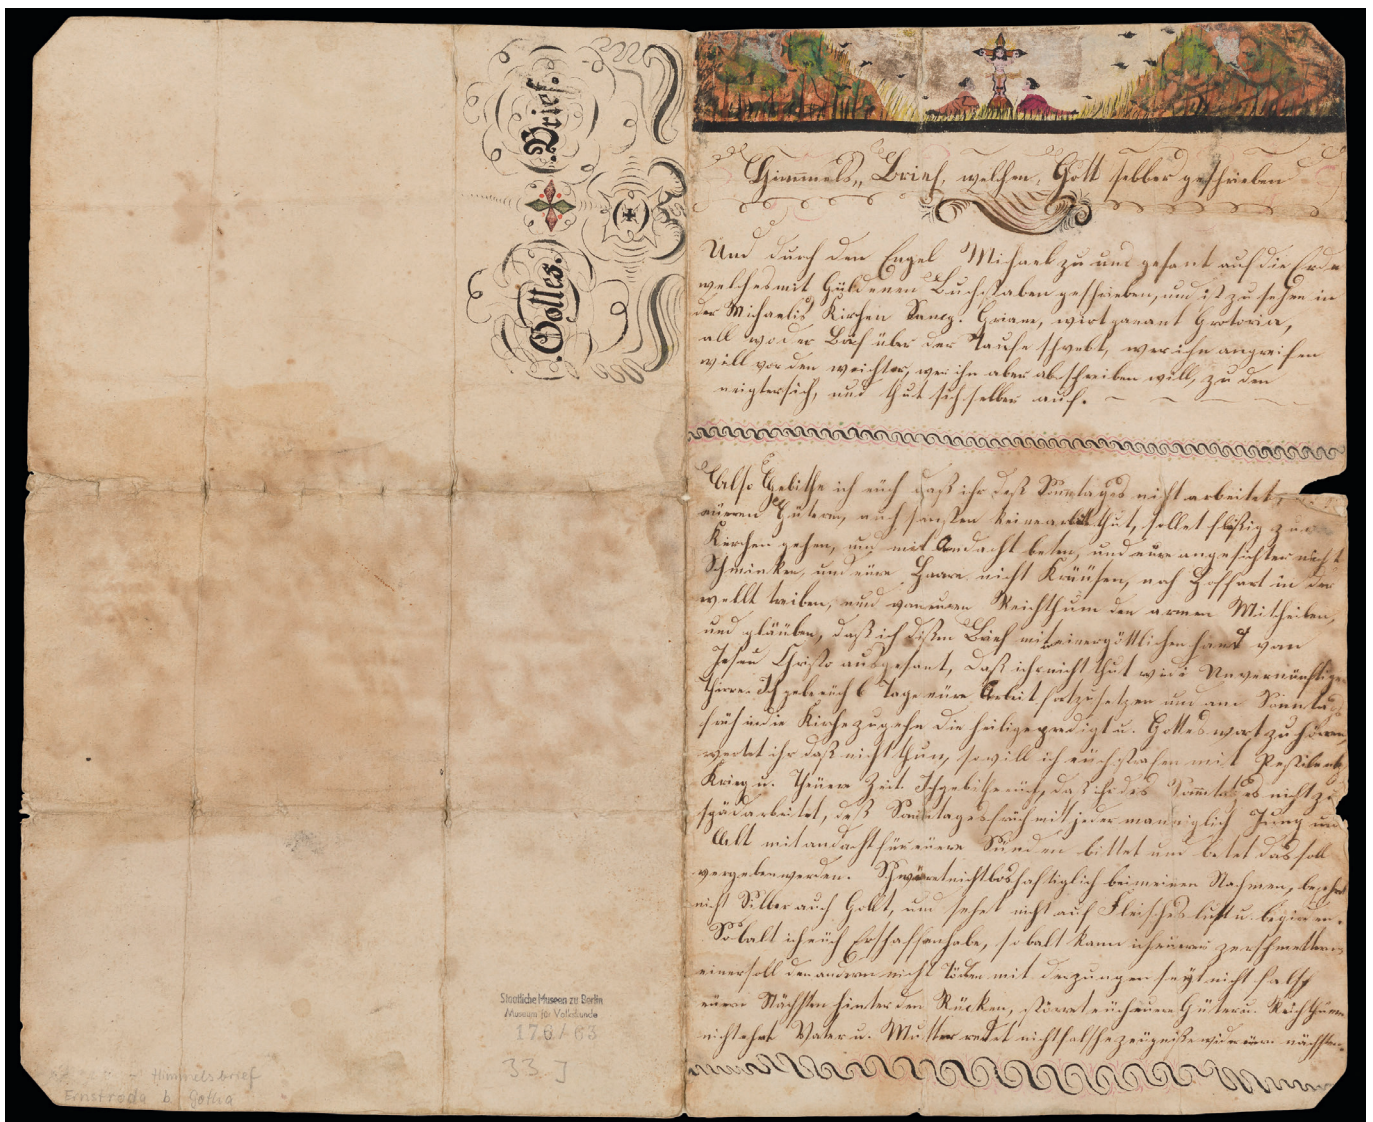 .Gottes. Brief.
Staatliche Museen zu Berlin
Museum für Volkskunde
178/63
33 J
Himmelsbrief
Ernstroda b. Gotha
Himmels,, Brief, welchen Gott selber geschrieben
Und durch den Engel Michael zu uns gesant auf die Erde
welches mit Güldenen Buchstaben geschrieben, und ist zu sehen in
der Michaelis Kirchen wirt genant Grotoria,
all wo der Brief über der Taufe schwebt, wer ihn angreifen
will vor den weichter, wer ihn aber abschreiben will, zu den
neigter sich, und thut sich selber auf.
Also Gebithe ich euch daß ihr deß Sonntages nicht arbeitet,
eüeren Gütern, auch sonsten keine arbeit thut, sollet fleißig zu
Kirchen gehen, und mit Andacht beten, und eüre angesichter nicht
Schminken, und eüre Haare nicht Kräüsen, noch Hoffart in der
wellt treiben, und von euren Reichthum den armen Mitheilen,
und gläuben, daß ich dißen Brief mit einer göttlichen hand von
Jesu Christo ausgesant, daß ihr nicht thut wie Unvernünftige
Thiere. Ich gebe euch 6 Tage eüre Arbeit fortzusetzen und am Sonntag
früh in die Kirche zu gehn die heilige predigt u. Gottes wort zu hören,
werdet ihr daß nicht thun, so will ich euch strafen mit Pestilentz
Krieg u. Theüere Zeit. Ich gebithe euch, das ihr des Sonntages nicht zu
späd arbeitet, deß Sonntages früh mit jeder manniglich Jung und
Alt mit andacht für eüere Sünden bittet und betet das soll
vergeben werden. Schwöret nicht boshaftiglich bei meinen Nahmen, begehret
nicht Silber auch Gold, und sehet nicht auf Fleisches lust u. begirden.
So balt ich euch Erschaffen habe, so balt kann ich zerschmettern
einer soll den andern nicht Töden mit der zungen seyt nicht falsch
eüern Nächsten hinter den Rücken, eüere Güter u. Reichthum
nicht ehrt Vater u. Mutter redet nicht falsche zeügniße nächsten